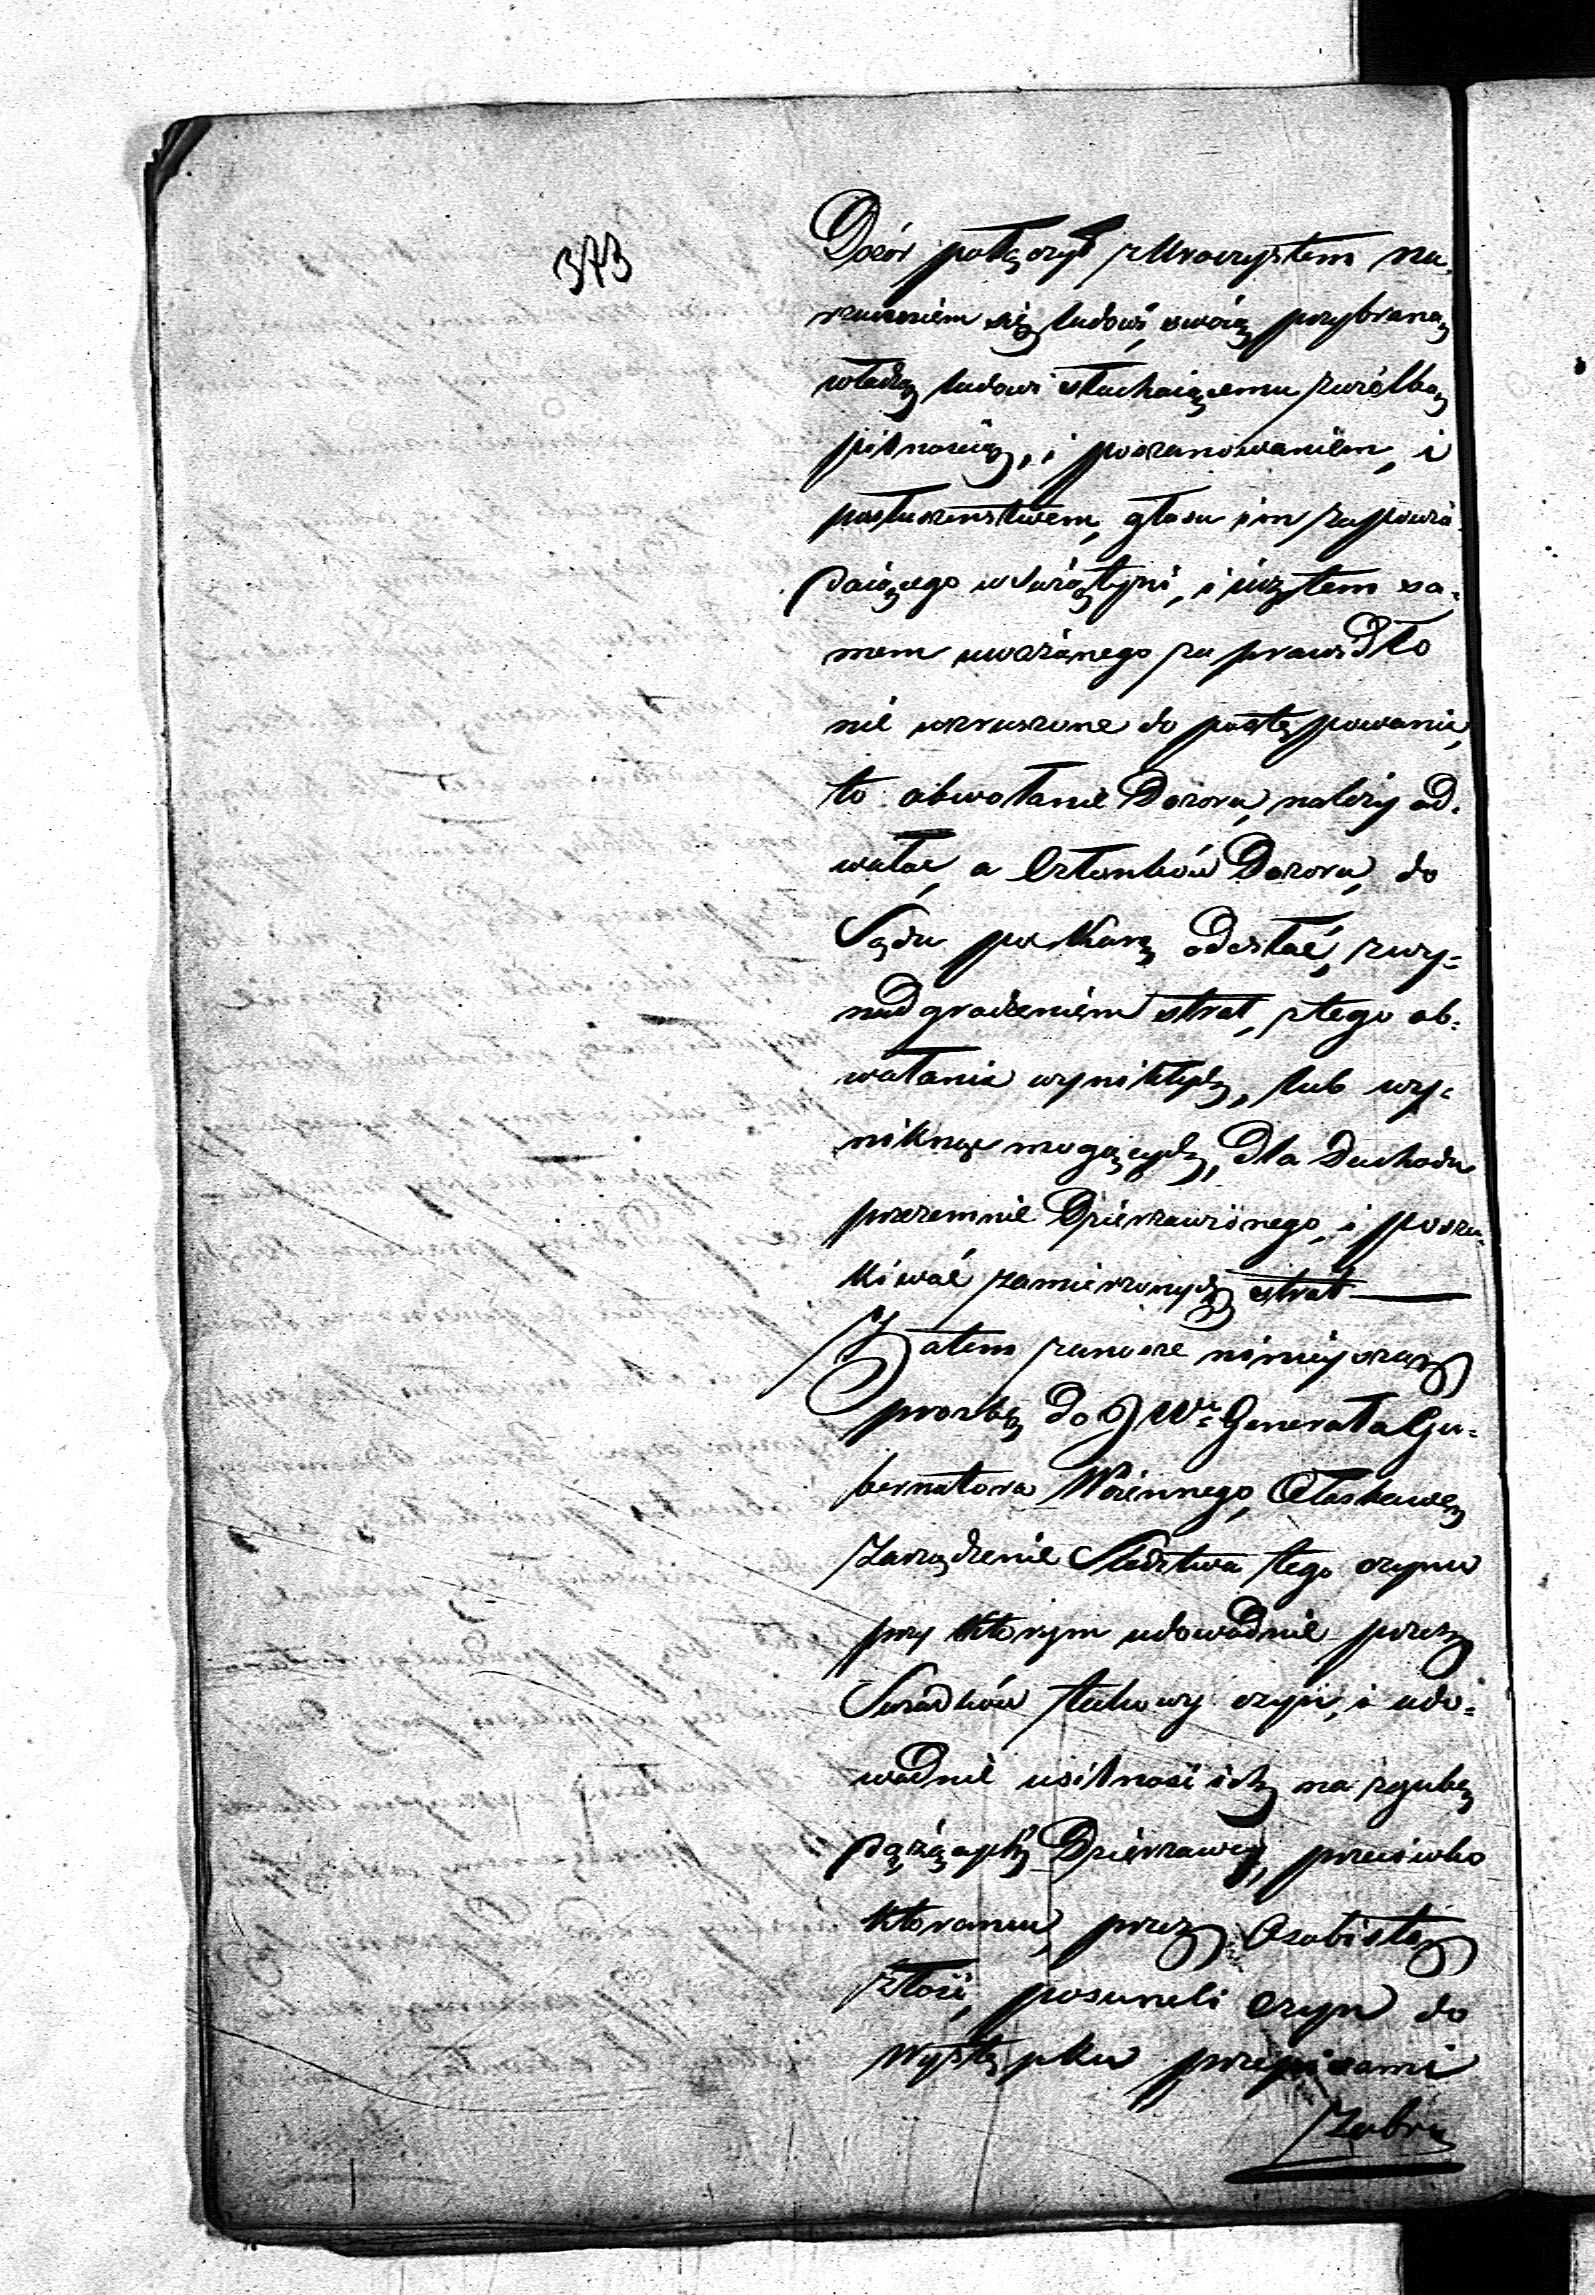 373
Dozór połączył z Uroczystem na-
rzuceniem się ludowi swoią przybraną
władzą ludowi słuchaiącemu zwielką
pilnością, i poszanowaniem, i
posłuszeństwem, głosu im zapowia-
daiącego w Swiątyni, i iuż tem sa-
mem uważanego za prawidło
nie wzruszone do postępowania,
to obwołanie Dozoru, należy od-
wołać, a Członków Dozoru, do
Sądu po Karę odesłać, z wy-
nadgrodzeniem strat, z tego ob-
wołania wynikłych, lub wy-
niknąć mogących, dla Dochodu
przezemnie Dzierzawionego, i poszu-
kiwać zamierzonych strat
Zatem zanoszę ninieyszą
prozbę do JWo Generała Gu-
bernatora Woiennego, O łaskawe
Zarządzenie Sledztwa tego czynu
przy którym udowodnię przez
Swiadków takowy czyn, i udo-
wodnię usilność ich na zgubę
dążących Dzierzawcy, przeciwko
któremu, przez Osobistą
złość, posuneli czyn do
Występku przepisami
Zabro